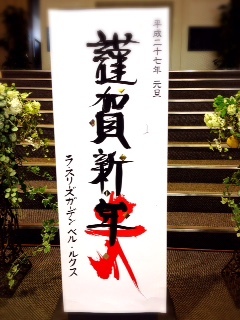 平成二十七年 元旦
謹賀新年
ラ・スリーズガーデン ベル・ルクス